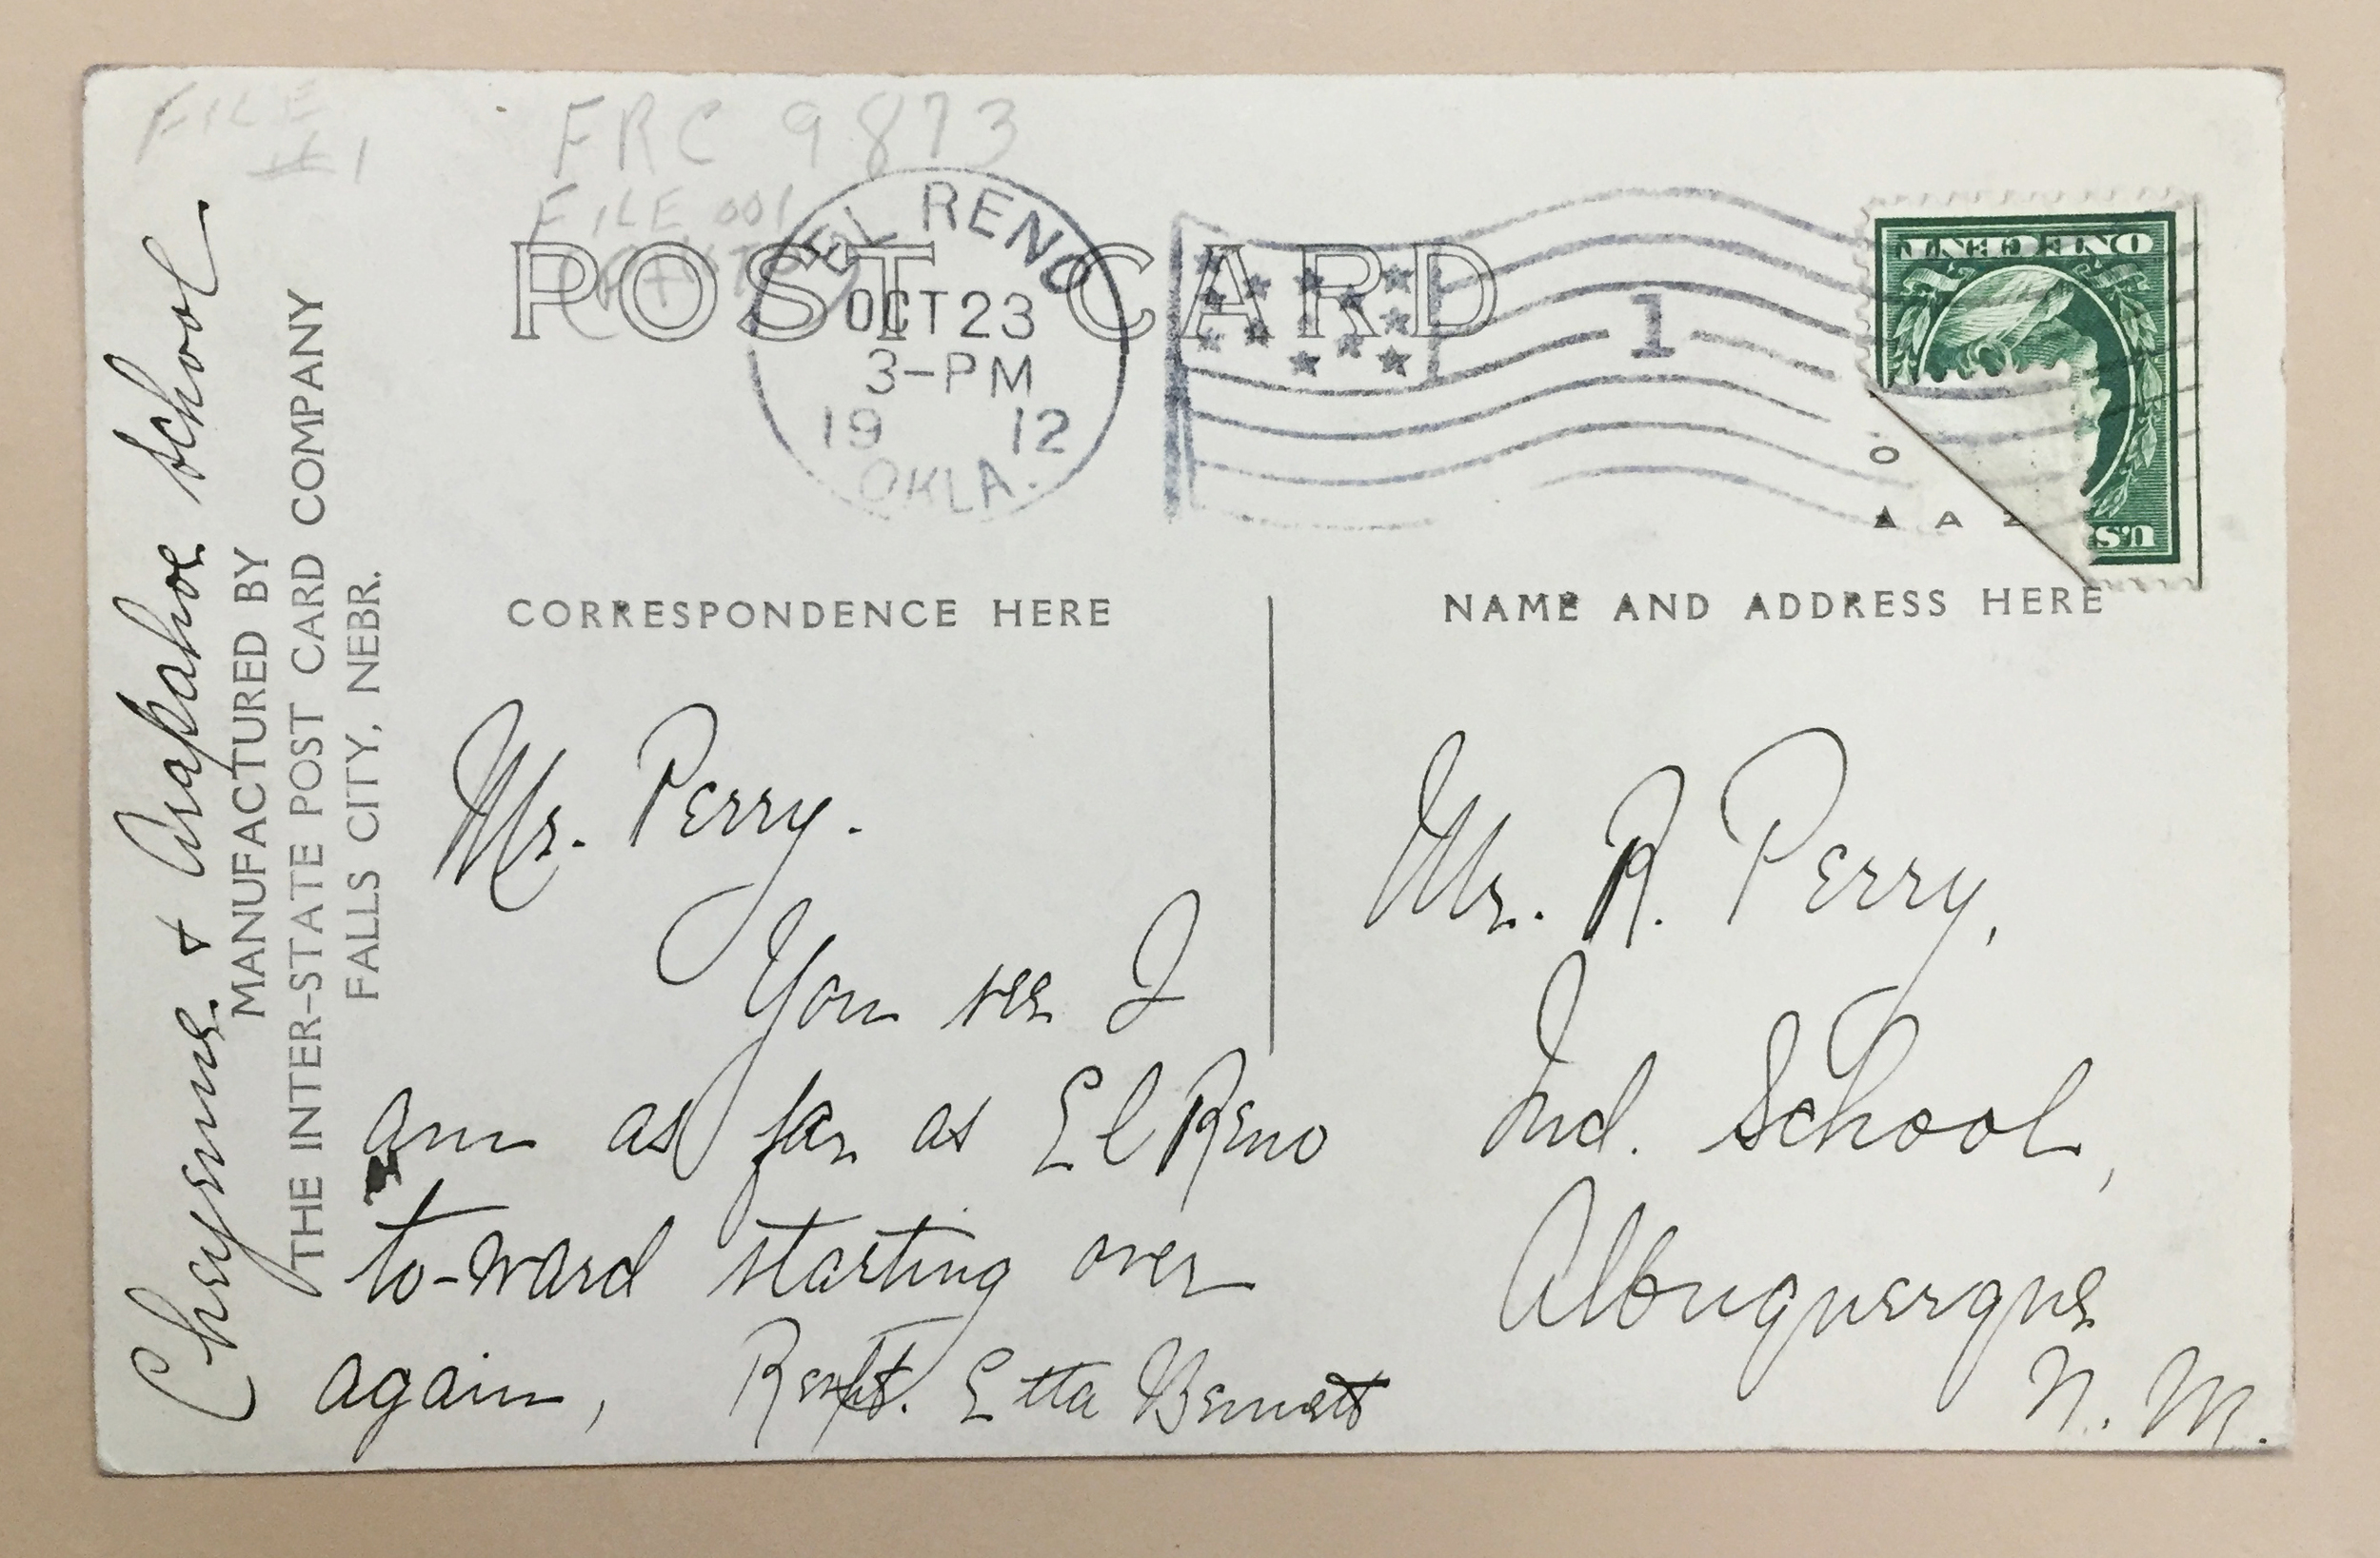 FILE
#1
FRC 9873
FILE 001
POST CARD
EL RENO
OCT 23
3-PM
19 12
OKLA.
1
ONE CENT
U.S.
O
A
Cheyenne & Arapahoe School
MANUFACTURED BY
THE INTER-STATE POST CARD COMPANY
FALLS CITY, NEBR.
CORRESPONDENCE HERE
Mr. Perry.
You see I
am as far as El Reno
to-ward starting over
again, Respt. Etta Bennett
NAME AND ADDRESS HERE
Mr. R. Perry,
Ind. School,
Albuquerque
N. M.